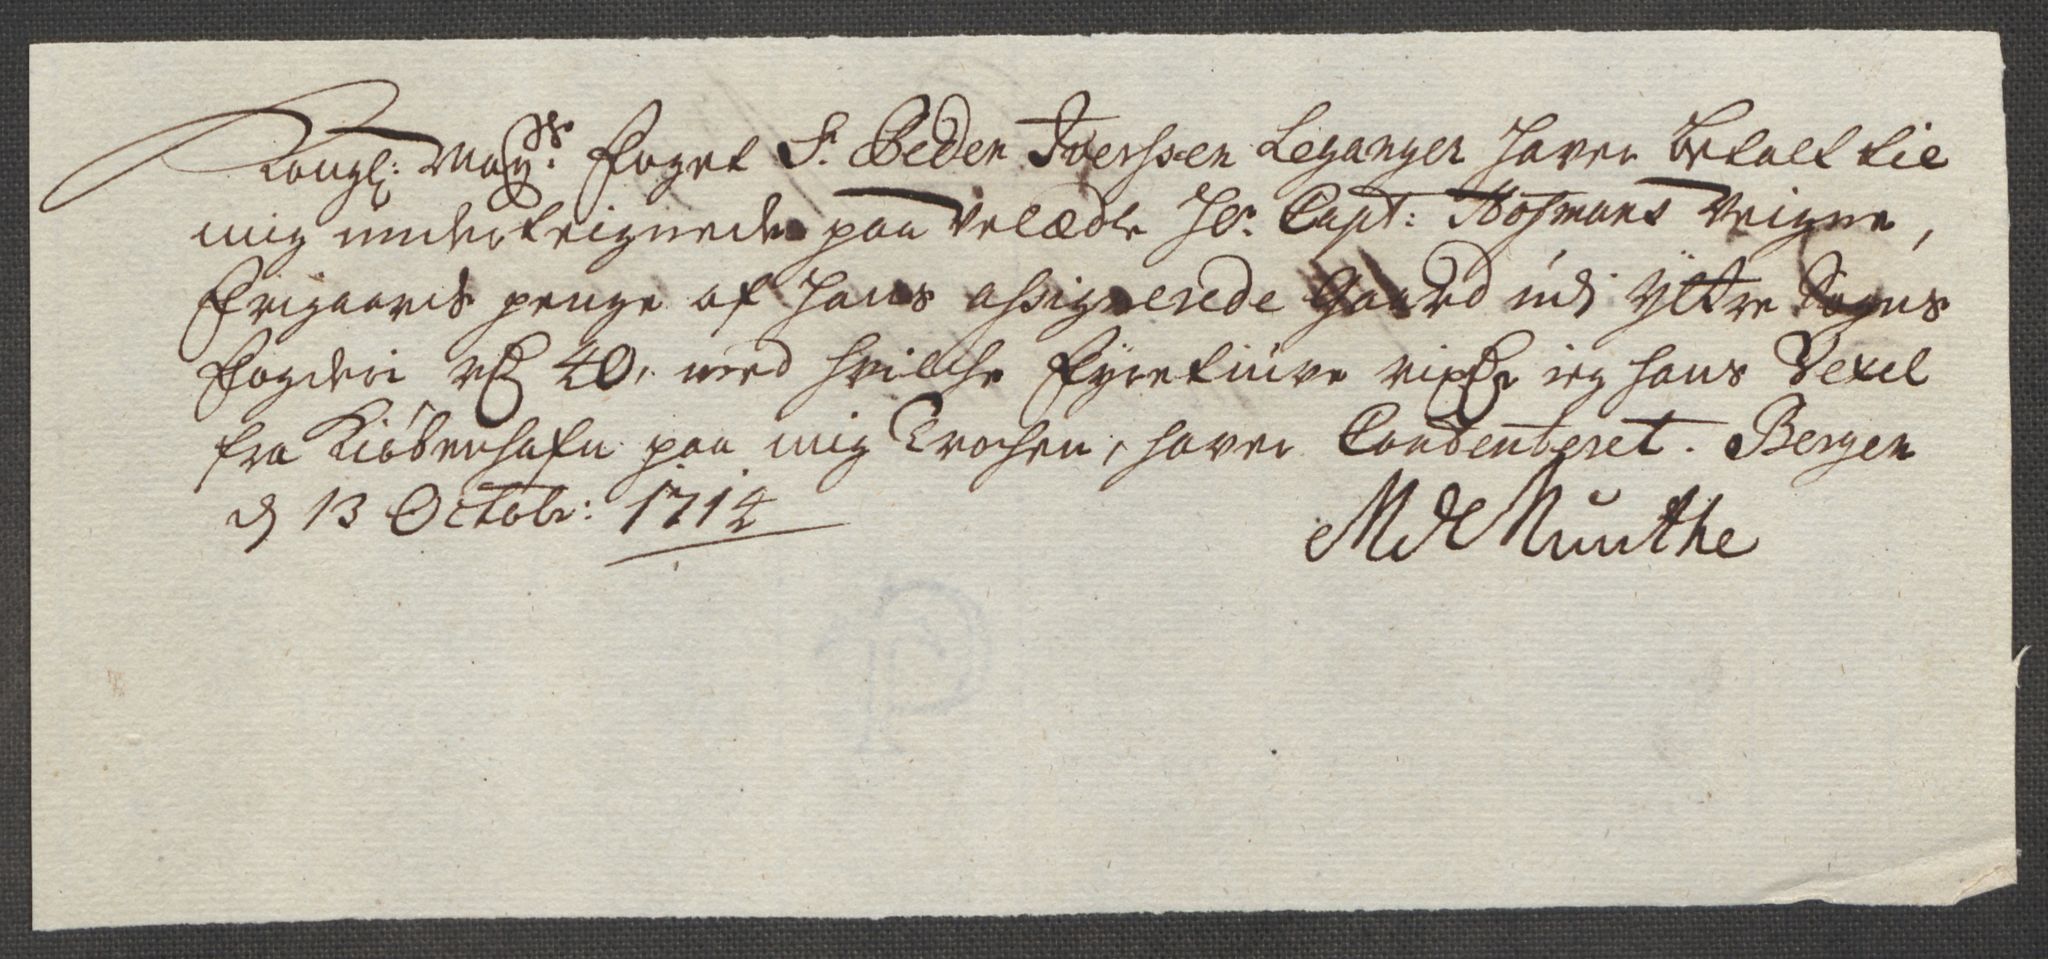 Kongl: May:ts Foget Sr. Peder Iverssen Leganger haver betalt til
mig underteignede paa Velædle Hr. Capt: Hofmans Veigne,
Frigaards penge af hans assignerede Gaard udi Yttre Sogns
Fogderi rd 40, med hvilche Fyretiuve rixdr ieg hans Vexel
fra Kiøbenhafn paa mig trochen, haver Contenteret. Bergen
d 13 Octobr: 1714
M de Münthe